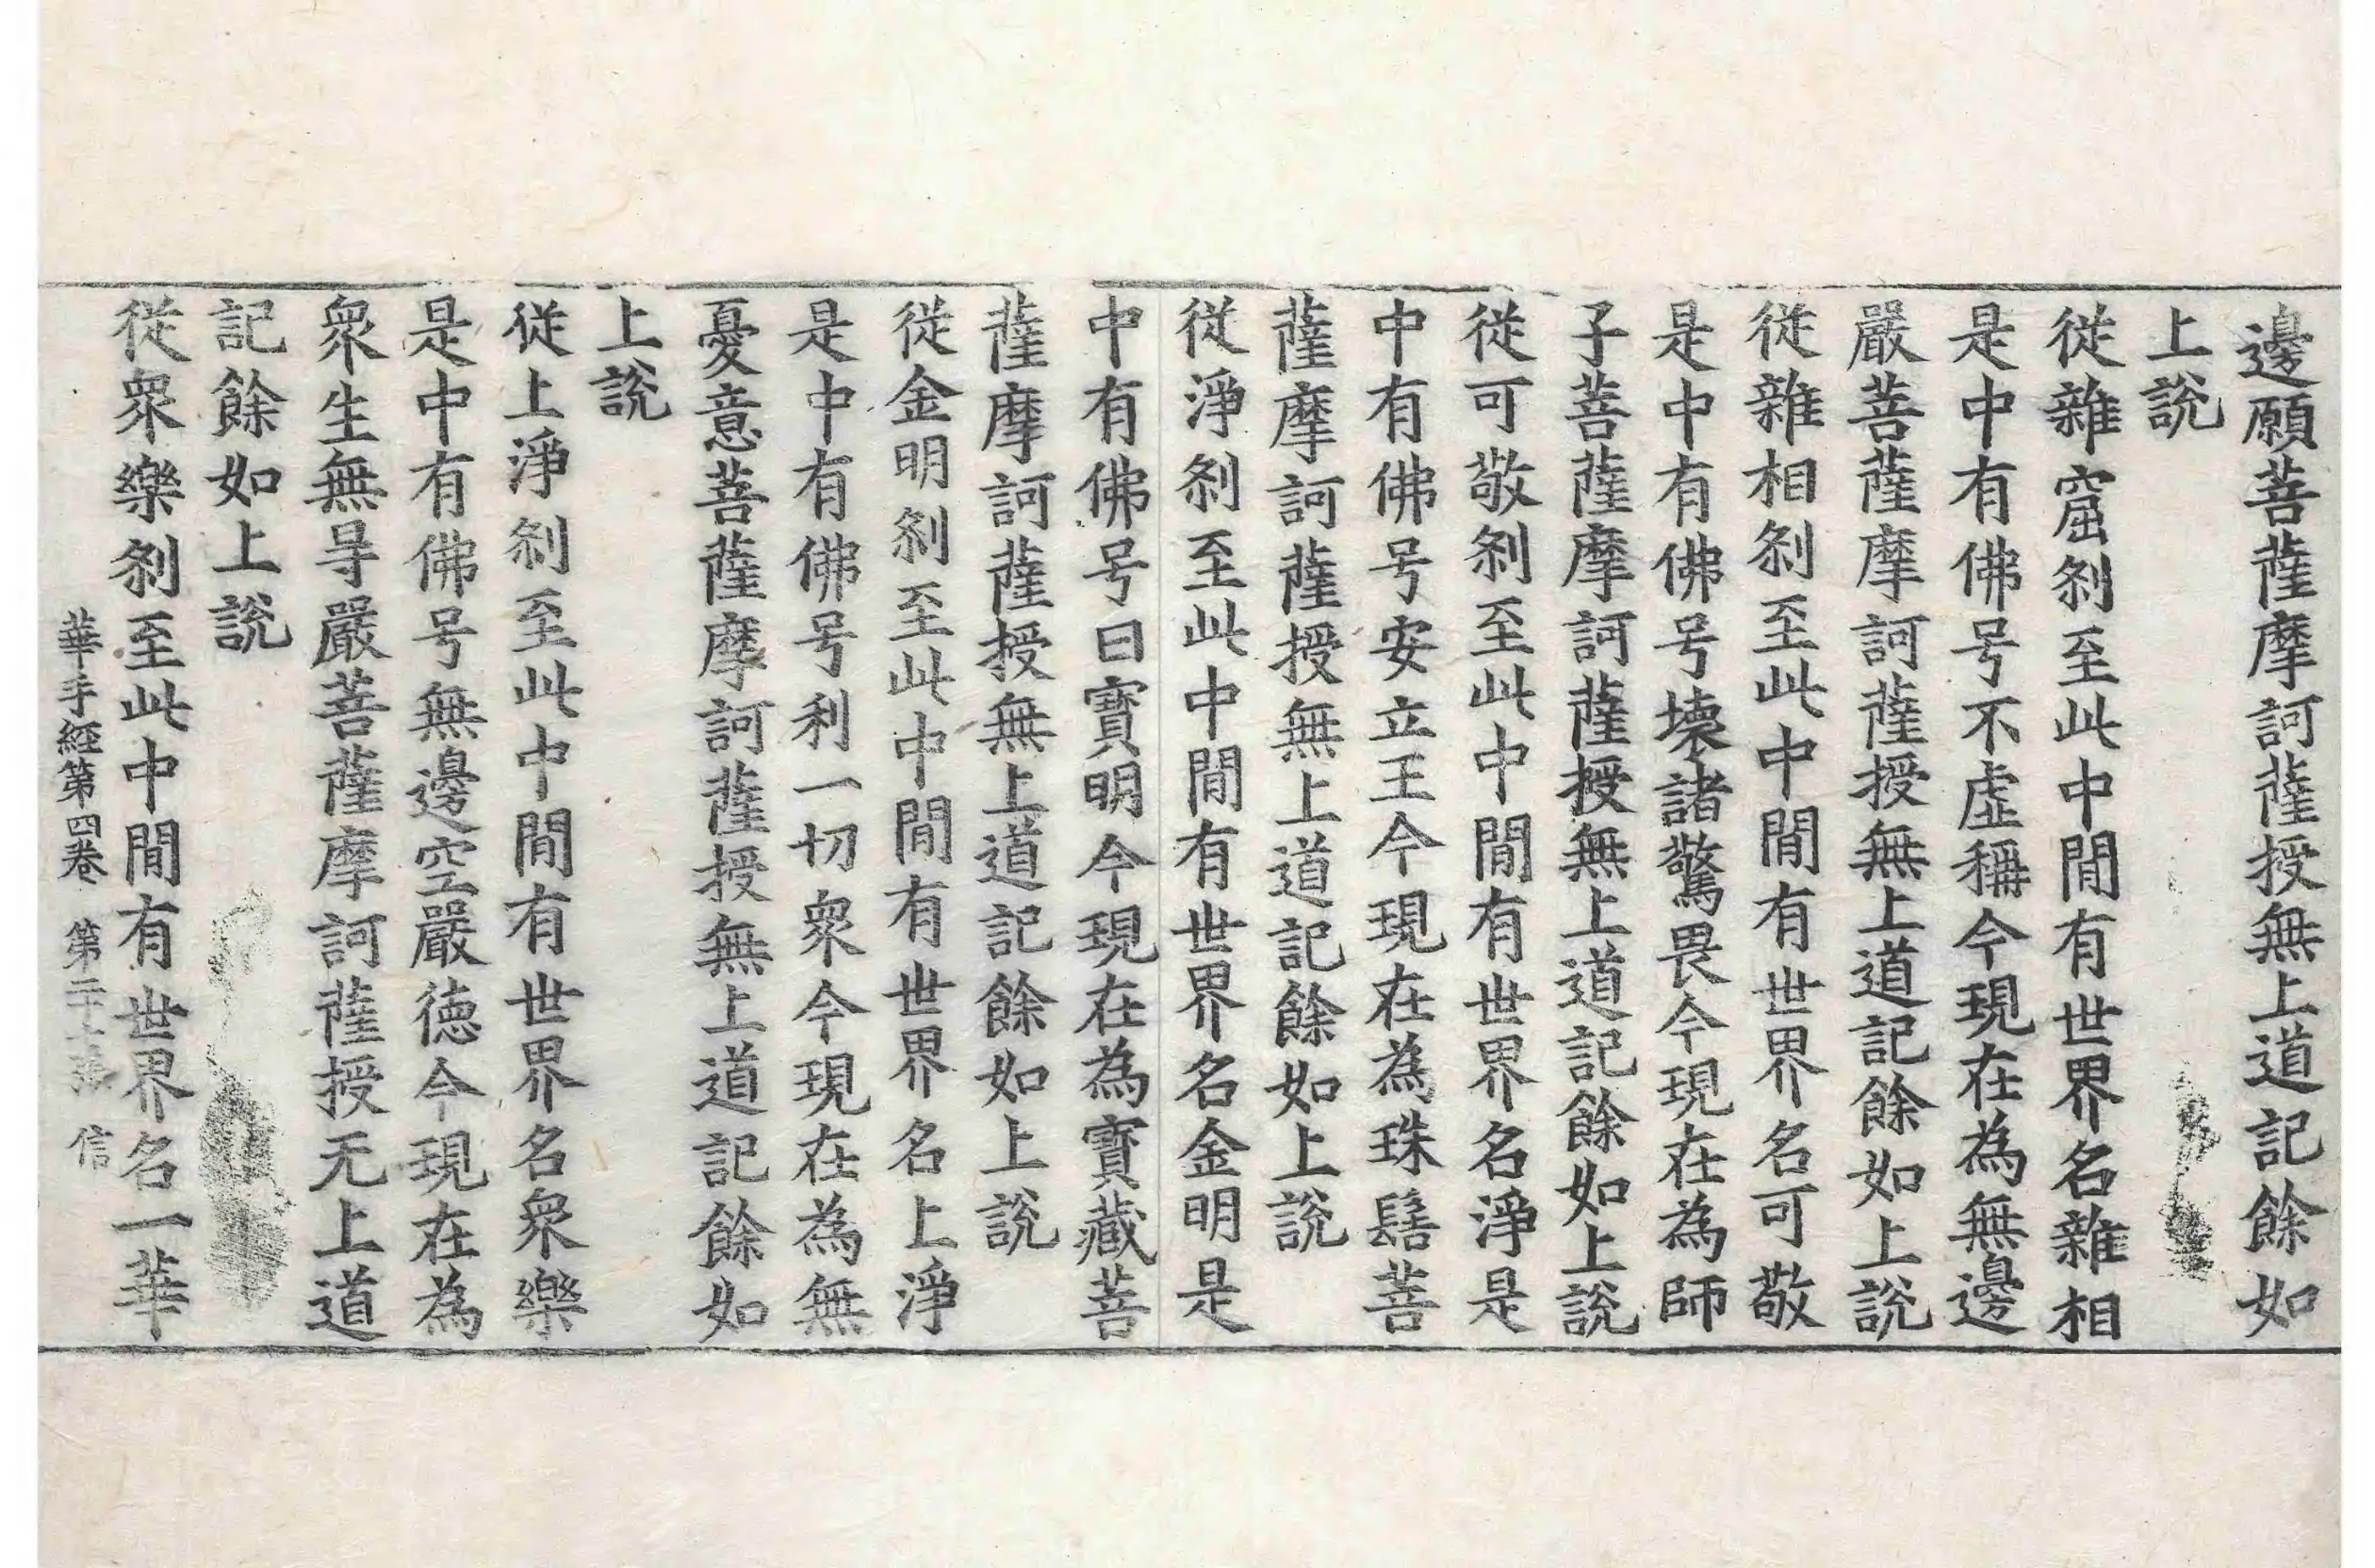 邊願菩薩摩訶薩授無上道記餘如
上說
從雜窟刹至此中間有世界名雜相
是中有佛号不虛稱今現在為無邊
嚴菩薩摩訶薩授無上道記餘如上說
從雜相刹至此中間有世界名可敬
是中有佛号壞諸驚畏今現在為師
子菩薩摩訶薩授無上道記餘如上說
從可敬刹至此中間有世界名淨是
中有佛号安立王今現在為珠髻菩
薩摩訶薩授無上道記餘如上說
從淨刹至此中間有世界名金明是
中有佛号曰寶明今現在為寶藏菩
薩摩訶薩授無上道記餘如上說
從金明刹至此中間有世界名上淨
是中有佛号利一切衆今現在為無
憂意菩薩摩訶薩授無上道記餘如
上說
從上淨刹至此中間有世界名衆樂
是中有佛号無邊空嚴德今現在為
衆生無㝵嚴菩薩摩訶薩授无上道
記餘如上說
從衆樂刹至此中間有世界名一華
華手經第四卷 第二十張 信